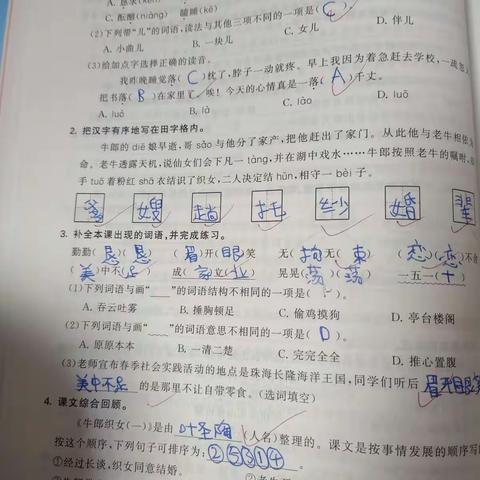 A. 恳求(kěn)
C. 酝酿(niàng) 瞌睡(kē)
(2)下列带“儿”的词语,读法与其他三项不同的一项是( C )。
A. 小曲儿 B. 一块儿 C. 女儿 D. 伴儿
(3)给加点字选择正确的读音。
我昨晚睡觉落( C )枕了,脖子一动就疼。早上我因为着急赶去学校,一疏忽
把书落( B )在家里了,唉!今天的心情真是一落( A )千丈。
A. luò B. là C. lào D. luō
2. 把汉字有序地写在田字格内。
牛郎的 diē 娘早逝,哥 sǎo 与他分了家产,把他赶出了家门。从此他与老牛相依为
命。老牛透露天机,说仙女们会下凡一 tàng,并在湖中戏水……牛郎按照老牛的嘱咐,
手 tuō 着粉红 shā 衣结识了织女,二人决定结 hūn,相守一 bèi 子。
爹 嫂 趟 托 纱 婚 辈
3. 补全本课出现的词语,并完成练习。
勤勤(恳)(恳) (眉)开(眼)笑 无(拘)无(束) (恋)(恋)不舍
(美)中不(足) 成(家)立(业) 晃晃(荡)(荡) 一五一(十)
(1)下列词语与画“ ”的词语结构不相同的一项是( )。
A. 吞云吐雾 B. 捶胸顿足 C. 偷鸡摸狗 D. 亭台楼阁
(2)下列词语与画“ ”的词语意思不相同的一项是( D )。
A. 原原本本 B. 一清二楚 C. 完完全全 D. 推心置腹
(3)老师宣布春季社会实践活动的地点是珠海长隆海洋王国,同学们听后 眉开眼笑
美中不足 的是那里不让自带零食。(选词填空)
4. 课文综合回顾。
《牛郎织女(一)》是由 叶圣陶 (人名)整理的。课文是按事情发展的顺序写
按这个顺序,下列句子可排序为:②⑤③①④。
①经过长谈,织女同意结婚。